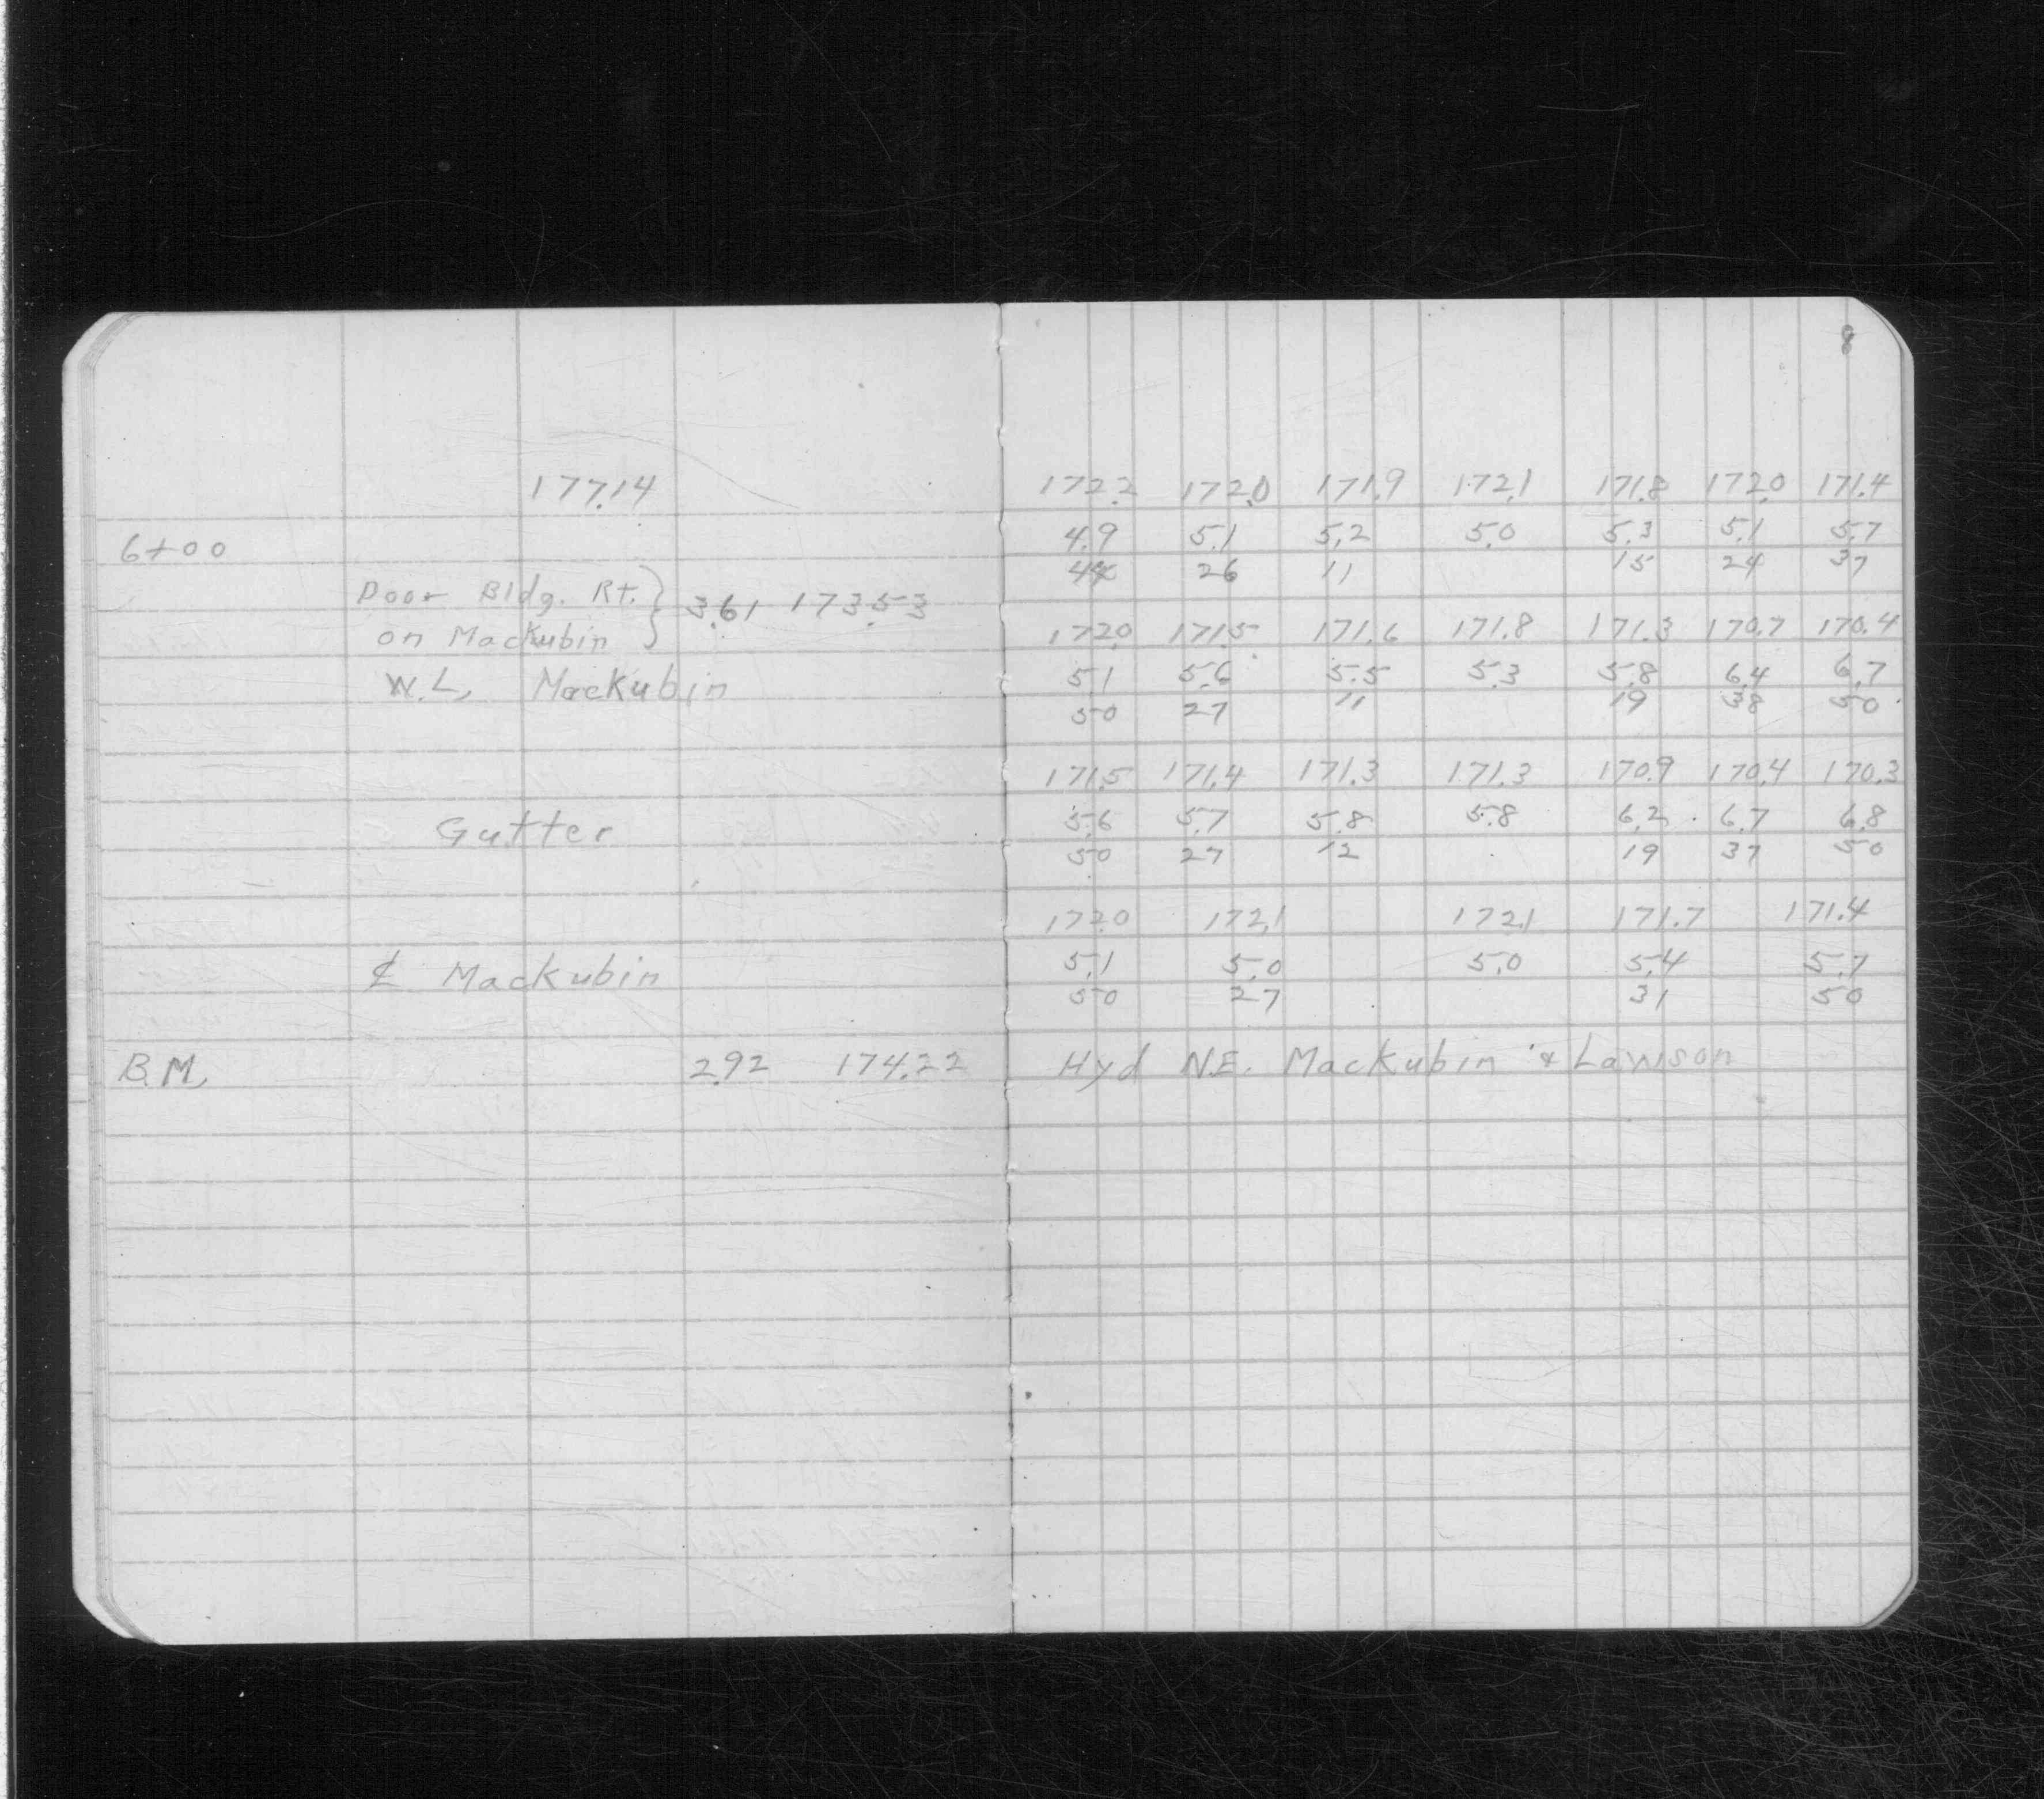 8
177.14 172.2 172.0 171.9 172.1 171.8 172.0 171.4
4.9 5.1 5.2 5.0 5.3 5.1 5.7
6+00
44 26 11 15 24 37
Door Bldg. Rt. } 3.61 173.53
on Mackubin
172.0 171.5 171.6 171.8 171.3 170.7 170.4
W.L. Mackubin 5.1 5.6 5.5 5.3 5.8 6.4 6.7
50 27 11 19 38 50
171.5 171.4 171.3 171.3 170.9 170.4 170.3
Gutter 5.6 5.7 5.8 5.8 6.2 6.7 6.8
50 27 12 19 37 50
172.0 172.1 172.1 171.7 171.4
℄ Mackubin 5.1 5.0 5.0 5.4 5.7
50 27 31 50
B.M. 2.92 174.22 Hyd N.E. Mackubin & Lawson